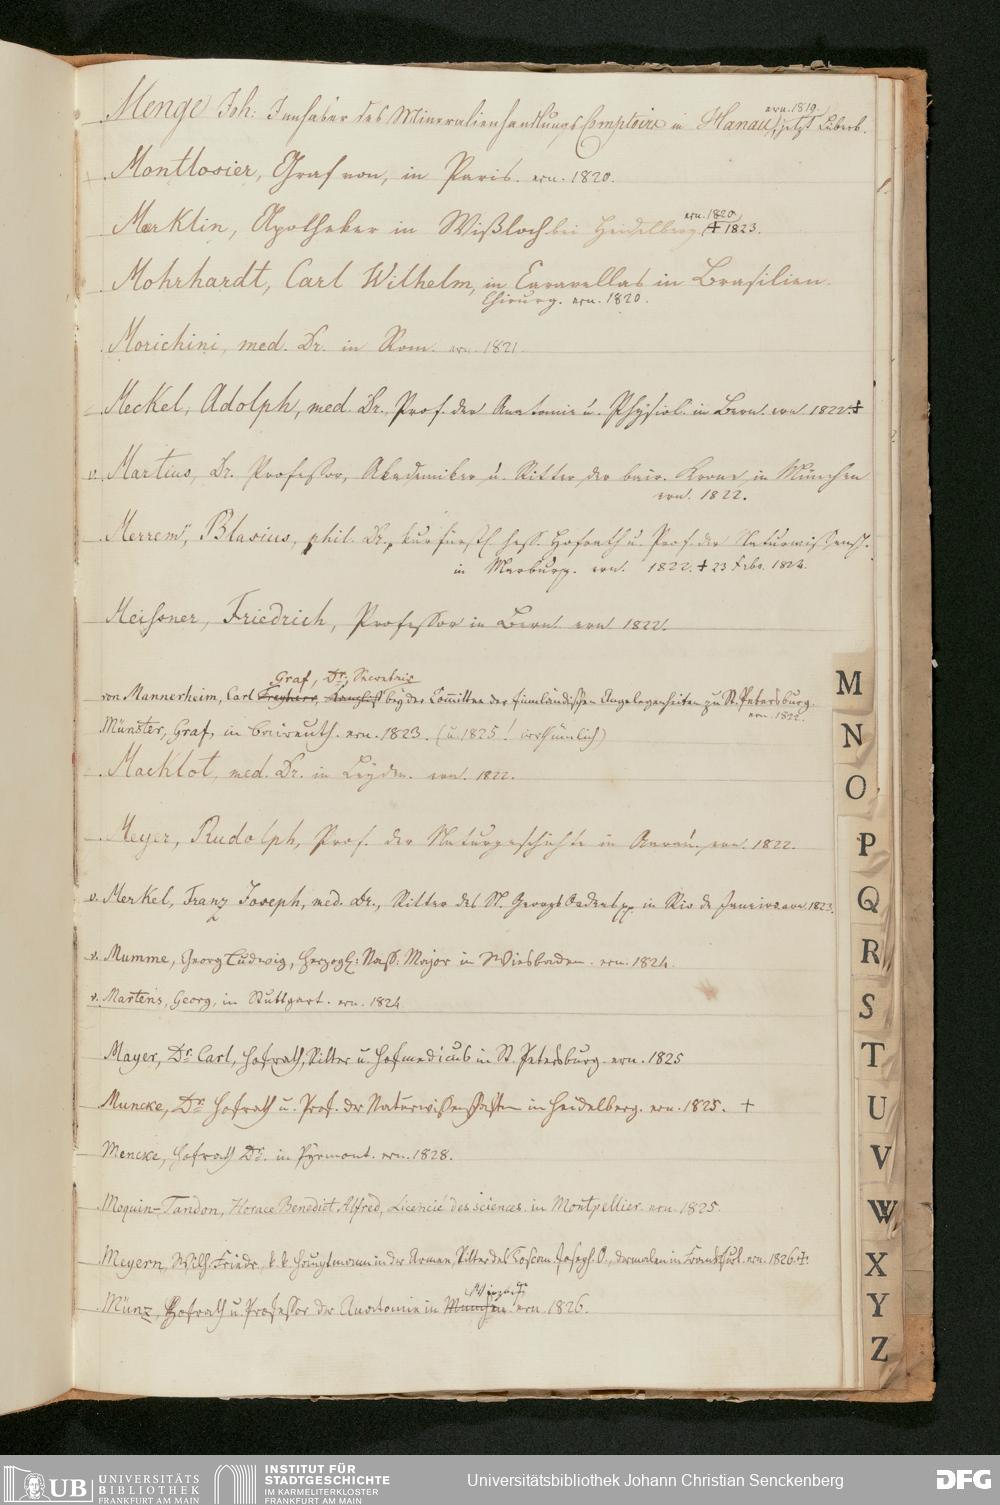 ern. 1819.
Menge Joh: Innhaber des Mineralienhandlungs Comptoirs in Hanau, jetzt Lübeck.
Montlosier, Graf von, in Paris. ern. 1820.
ern. 1820
Mærklin, Apotheker in Wißloch bei Heidelberg. † 1823.
Mohrhardt, Carl Wilhelm, in Caravellas in Brasilien.
Chirurg. ern. 1820.
Morichini, med. Dr. in Rom. ern. 1821.
Meckel, Adolph, med. Dr., Prof. der Anatomie u. Physiol. in Bern. ern. 1822. †
v. Martius, Dr. Professor, Akademiker u. Ritter der bair. Krone, in München
ern. 1822.
Merrem, Blasius, phil. Dr., kurfürstl. hess. Hofrath u. Prof. der Naturwissensch.
in Marburg. ern. 1822. † 23 Febr. 1824.
Meisner, Friedrich, Professor in Bern. ern 1822.
Graf, Dr., Secretair
von Mannerheim, Carl Freyherr, Kanzlist bey der Comittee der finnländischen Angelegenheiten zu St. Petersburg.
ern. 1822.
Münster, Graf, in Baireuth. ern. 1823. (u. 1825! irrthümlich)
Macklot, med. Dr. in Leyden. ern. 1822.
Meyer, Rudolph, Prof. der Naturgeschichte in Aarau. ern. 1822.
v. Merkel, Franz Joseph, med. Dr., Ritter des St. Georgs Ordens pp. in Rio de Janeiro. ern. 1823.
v. Mumme, Georg Ludwig, Herzogl: Nass: Major in Wiesbaden. ern. 1824.
v. Martens, Georg, in Stuttgart. ern. 1824
Mayer, Dr. Carl, Hofrath, Ritter u. Hofmedicus in St. Petersburg. ern. 1825
Muncke, Dr. Hofrath u. Prof. der Naturwissenschaften in Heidelberg. ern. 1825. †
Mencke, Hofrath Dr. in Pyrmont. ern. 1828.
Moquin-Tandon, Horace Benedict Alfred, Licencié des sciences in Montpellier. ern. 1825.
Meyern, Wilh. Friedr., k. k. Hauptmann in der Armee, Ritter des Toscan. Joseph. O., dermalen in Frankfurt. ern. 1826. †
Münz, Hofrath u. Professor der Anatomie in München ern. 1826.
M
N
O
P
Q
R
S
T
U
V
W
X
Y
Z
UB UNIVERSITÄTS
BIBLIOTHEK
FRANKFURT AM MAIN
INSTITUT FÜR
STADTGESCHICHTE
IM KARMELITERKLOSTER
FRANKFURT AM MAIN
Universitätsbibliothek Johann Christian Senckenberg
DFG